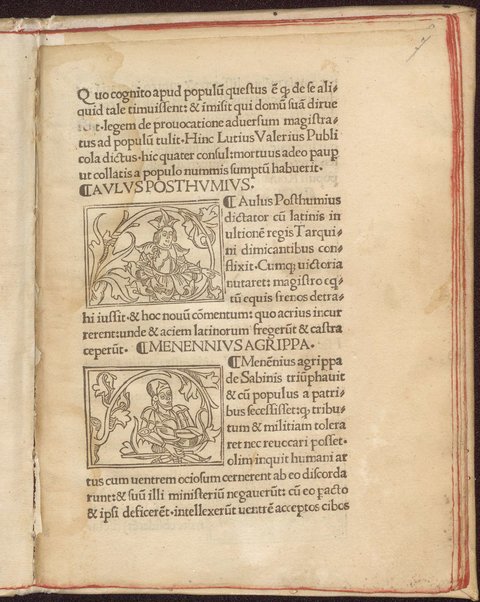 Quo cognito apud populū questus ē q; de se ali-
quid tale timuissent: & īmisit qui domū suā dirue
t•legem de prouocatione aduersum magistra-
tus ad populū tulit• Hinc Lutius Valerius Publi
cola dictus•hic quater consul:mortuus adeo paup
ut collatis a populo nummis sumptū habuerit•
¶AVLVS POSTHVMIVS.
¶ Aulus Posthumius
dictator cū latinis in
ultionē regis Tarqui-
ni dimicantibus con-
flixit• Cumq; uictoria
nutaret: magistro eq-
tū equis frenos detra-
hi iussit•& hoc nouū cōmentum: quo acrius incur
rerent:unde & aciem latinorum fregerūt & castra
ceperūt• ¶MENENNIVS AGRIPPA.
¶Menēnius agrippa
de Sabinis triūphauit
& cū populus a patri-
bus secessisset:q; tribu-
tum & militiam tolera
ret nec reuocari posset•
olim inquit humani ar
tus cum uentrem ociosum cernerent ab eo discorda
runt:& suū illi ministeriū negauerūt: cū eo pacto
& ipsi deficerēt•intellexerūt uentrē acceptos cibos